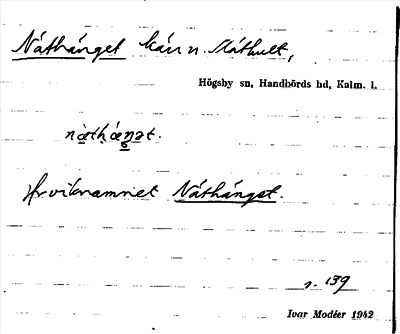 Nåthånget kärr n. Slåthult,
Högsby sn, Handbörds hd, Kalm. l.
Jfr viknamnet Nåthånget.
s. 139
Ivar Modéer 1942